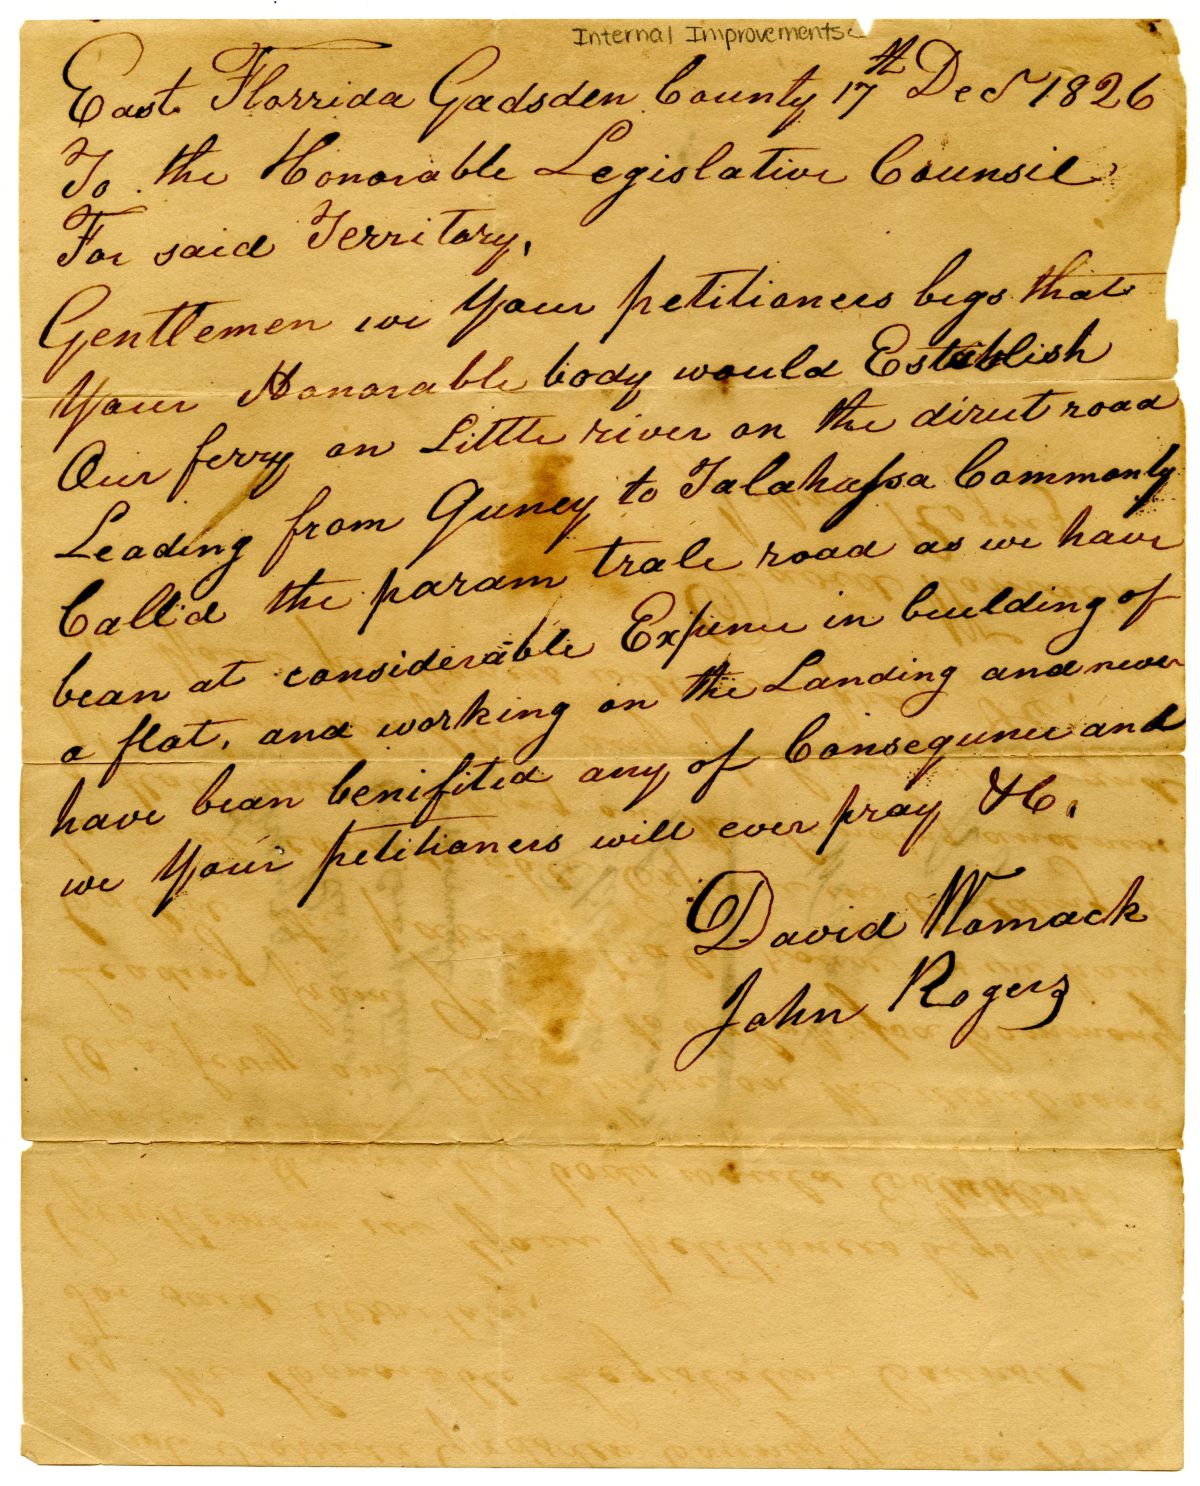 Internal Improvements
East Florrida Gadsden County 17th Decr 1826
To the Honorable Legislative Counsil
For said Territory,
Gentlemen we your petitioners begs that
your Honorable body would Establish
Our ferry on Little river on the direct road
Leading from Quncy to Talahassa Commonly
Call'd the param trale road as we have
bean at considerable Expence in building of
a flat, and working on the Landing and never
have bean benifited any of Consequnce and
we your petitioners will ever pray &C.
David Womack
John Rogers